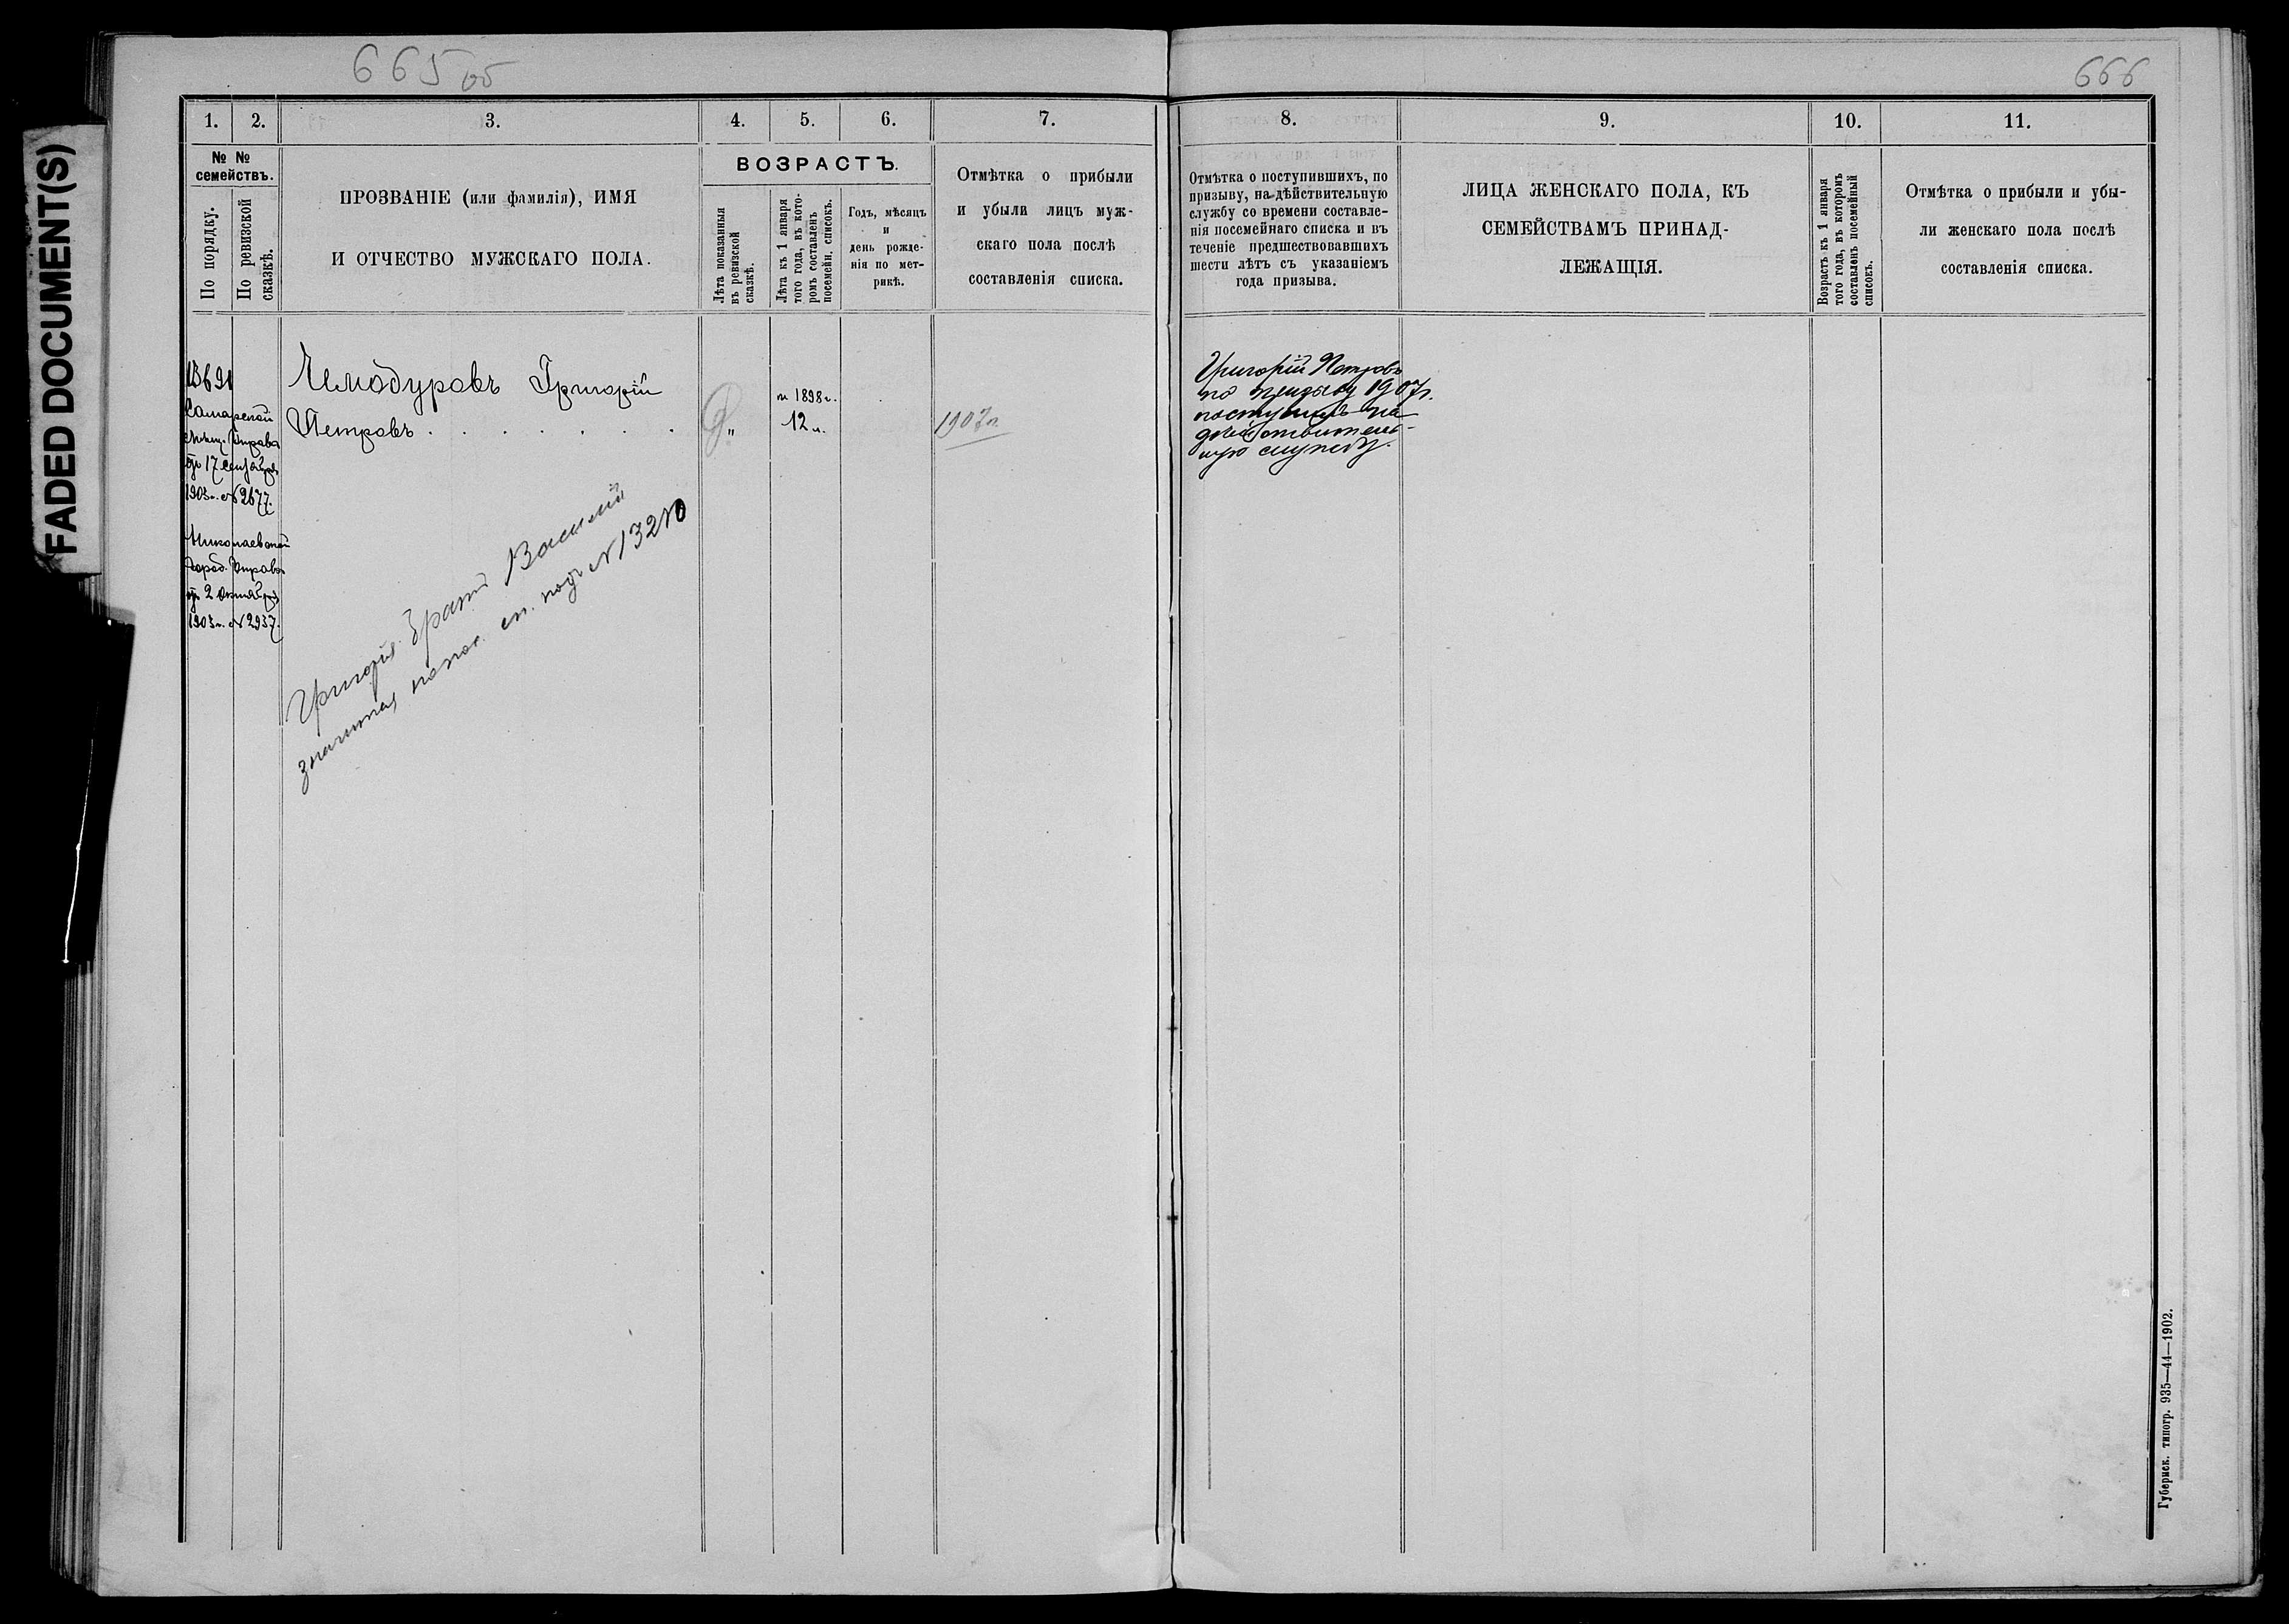 665 об
666
FADED DOCUMENT(S)
1.
2.
3.
4.
5.
6.
7.
8.
9.
10.
11.
№ №
семействъ.
По порядку.
По ревизской
сказкѣ.
ПРОЗВАНІЕ (или фамилія), ИМЯ
И ОТЧЕСТВО МУЖСКАГО ПОЛА.
ВОЗРАСТЪ.
Лѣта показанныя
въ ревизской
сказкѣ.
Лѣта къ 1 января
того года, въ кото-
ромъ составленъ
посемейн. списокъ.
Годъ, мѣсяцъ
и
день рожде-
нія по мет-
рикѣ.
Отмѣтка о прибыли
и убыли лицъ муж-
скаго пола послѣ
составленія списка.
Отмѣтка о поступившихъ, по
призыву, на дѣйствительную
службу со времени составле-
нія посемейнаго списка и въ
теченіе предшествовавшихъ
шести лѣтъ съ указаніемъ
года призыва.
ЛИЦА ЖЕНСКАГО ПОЛА, КЪ
СЕМЕЙСТВАМЪ ПРИНАД-
ЛЕЖАЩІЯ.
Возрастъ къ 1 января
того года, въ которомъ
составленъ посемейный
списокъ.
Отмѣтка о прибыли и убы-
ли женскаго пола послѣ
составленія списка.
Самарской
Мѣщ. Управы
отъ 17 Сентября
1903 г. № 2677.
Николаевской
Город. Управы
отъ 2 Октября
1903 г. № 2937.
Чемодуровъ Григорій
Петровъ
"
1898 г.
12 л.
1907 г.
Григорій Петровъ
по призыву 1907 г.
поступилъ на
дѣйствитель-
ную службу.
Григорія братъ Василій
значится по пос. сп. подъ №
Губернск. типогр. 935—44—1902.